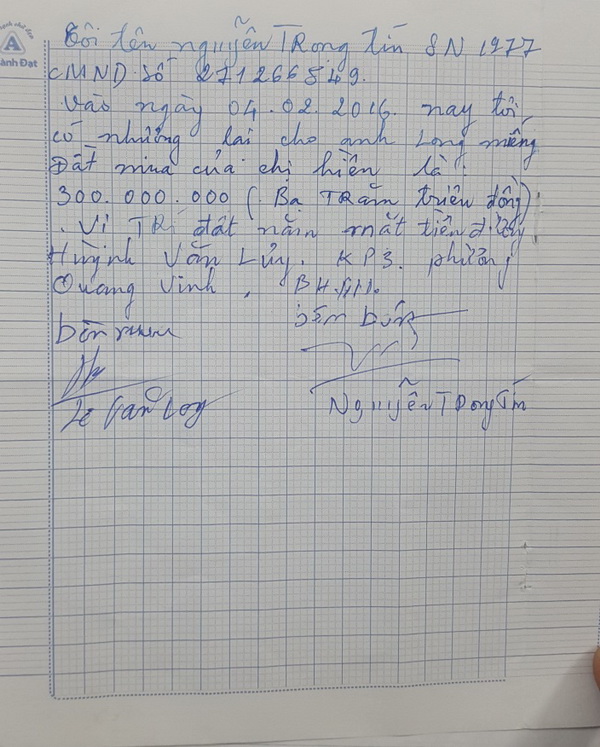 A
ành Đạt
Tôi tên nguyễn TRọng tín SN 1977
CMND số 271266549.
Vào ngày 04.02.2016. nay tôi,
có nhường lại cho anh Long miếng
Đất mua của chị hiền là:
300.000.000 (Ba TRăm triệu đồng)
. Vị TRí đất nằm mặt tiền đường
Huỳnh Văn Lũy. KP3. phường
Quang Vinh, BH.
bên mua bên bán
Lê Văn Long Nguyễn TRọng Tín